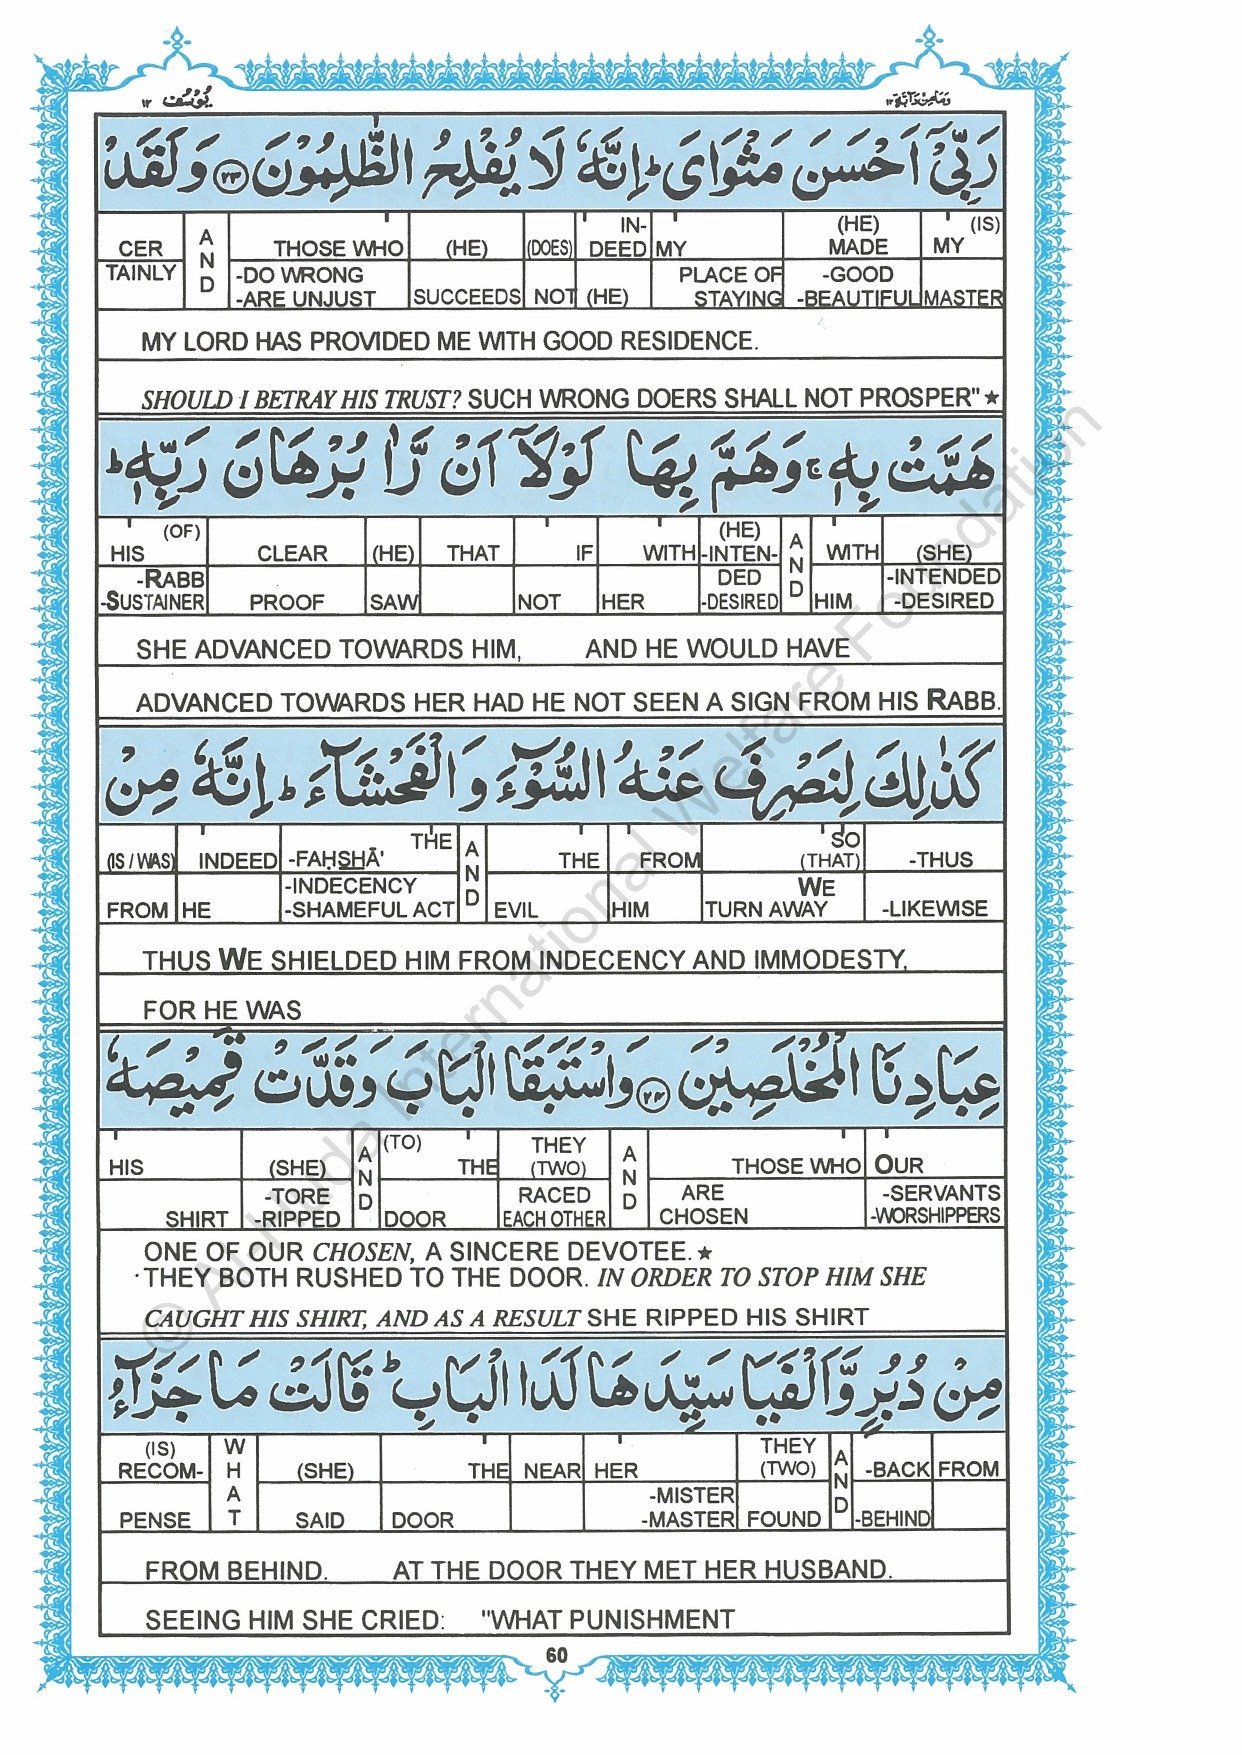 يُوسُف ١٢
وَمَا مِنْ دَآبَّة ١٢
رَبِّیْۤ اَحْسَنَ مَثْوَایَ ؕ اِنَّهٗ لَا یُفْلِحُ الظّٰلِمُوْنَ ﴿۲۳﴾ وَ لَقَدْ
CER AND THOSE WHO (HE) (DOES) IN-DEED MY (HE) MADE MY (IS)
TAINLY -DO WRONG -ARE UNJUST SUCCEEDS NOT (HE) PLACE OF STAYING -GOOD -BEAUTIFUL MASTER
MY LORD HAS PROVIDED ME WITH GOOD RESIDENCE.
SHOULD I BETRAY HIS TRUST? SUCH WRONG DOERS SHALL NOT PROSPER" ★
هَمَّتْ بِهٖ ۚ وَ هَمَّ بِهَا لَوْ لَاۤ اَنْ رَّاٰ بُرْهَانَ رَبِّهٖ ؕ
HIS (OF) CLEAR (HE) THAT IF WITH (HE) -INTEN- AND WITH (SHE)
-RABB -SUSTAINER PROOF SAW NOT HER DED -DESIRED HIM -INTENDED -DESIRED
SHE ADVANCED TOWARDS HIM, AND HE WOULD HAVE
ADVANCED TOWARDS HER HAD HE NOT SEEN A SIGN FROM HIS RABB.
كَذٰلِكَ لِنَصْرِفَ عَنْهُ السُّوْٓءَ وَ الْفَحْشَآءَ ؕ اِنَّهٗ مِنْ
(IS / WAS) INDEED -FAḤSHĀ' THE AND THE FROM SO (THAT) -THUS
FROM HE -INDECENCY -SHAMEFUL ACT EVIL HIM WE TURN AWAY -LIKEWISE
THUS WE SHIELDED HIM FROM INDECENCY AND IMMODESTY,
FOR HE WAS
عِبَادِنَا الْمُخْلَصِیْنَ ﴿۲۴﴾ وَ اسْتَبَقَا الْبَابَ وَ قَدَّتْ قَمِیْصَهٗ
HIS (SHE) AND (TO) THE THEY (TWO) AND THOSE WHO OUR
SHIRT -TORE -RIPPED DOOR RACED EACH OTHER ARE CHOSEN -SERVANTS -WORSHIPPERS
ONE OF OUR CHOSEN, A SINCERE DEVOTEE. ★
THEY BOTH RUSHED TO THE DOOR. IN ORDER TO STOP HIM SHE
CAUGHT HIS SHIRT, AND AS A RESULT SHE RIPPED HIS SHIRT
مِنْ دُبُرٍ وَّ اَلْفَیَا سَیِّدَهَا لَدَا الْبَابِ ؕ قَالَتْ مَا جَزَآءُ
(IS) RECOM- WHAT (SHE) THE NEAR HER THEY (TWO) AND -BACK FROM
PENSE SAID DOOR -MISTER -MASTER FOUND -BEHIND
FROM BEHIND. AT THE DOOR THEY MET HER HUSBAND.
SEEING HIM SHE CRIED: "WHAT PUNISHMENT
60
© Al-Huda International Welfare Foundation